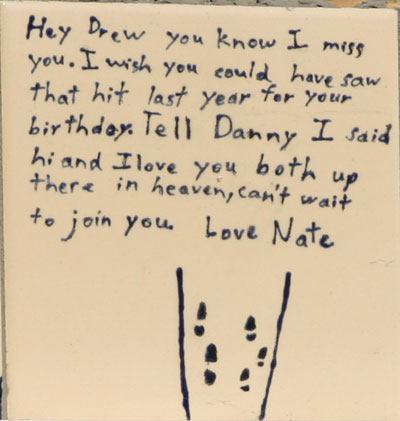 Hey Drew you know I miss
you. I wish you could have saw
that hit last year for your
birthday. Tell Danny I said
hi and I love you both up
there in heaven, can't wait
to join you. Love Nate